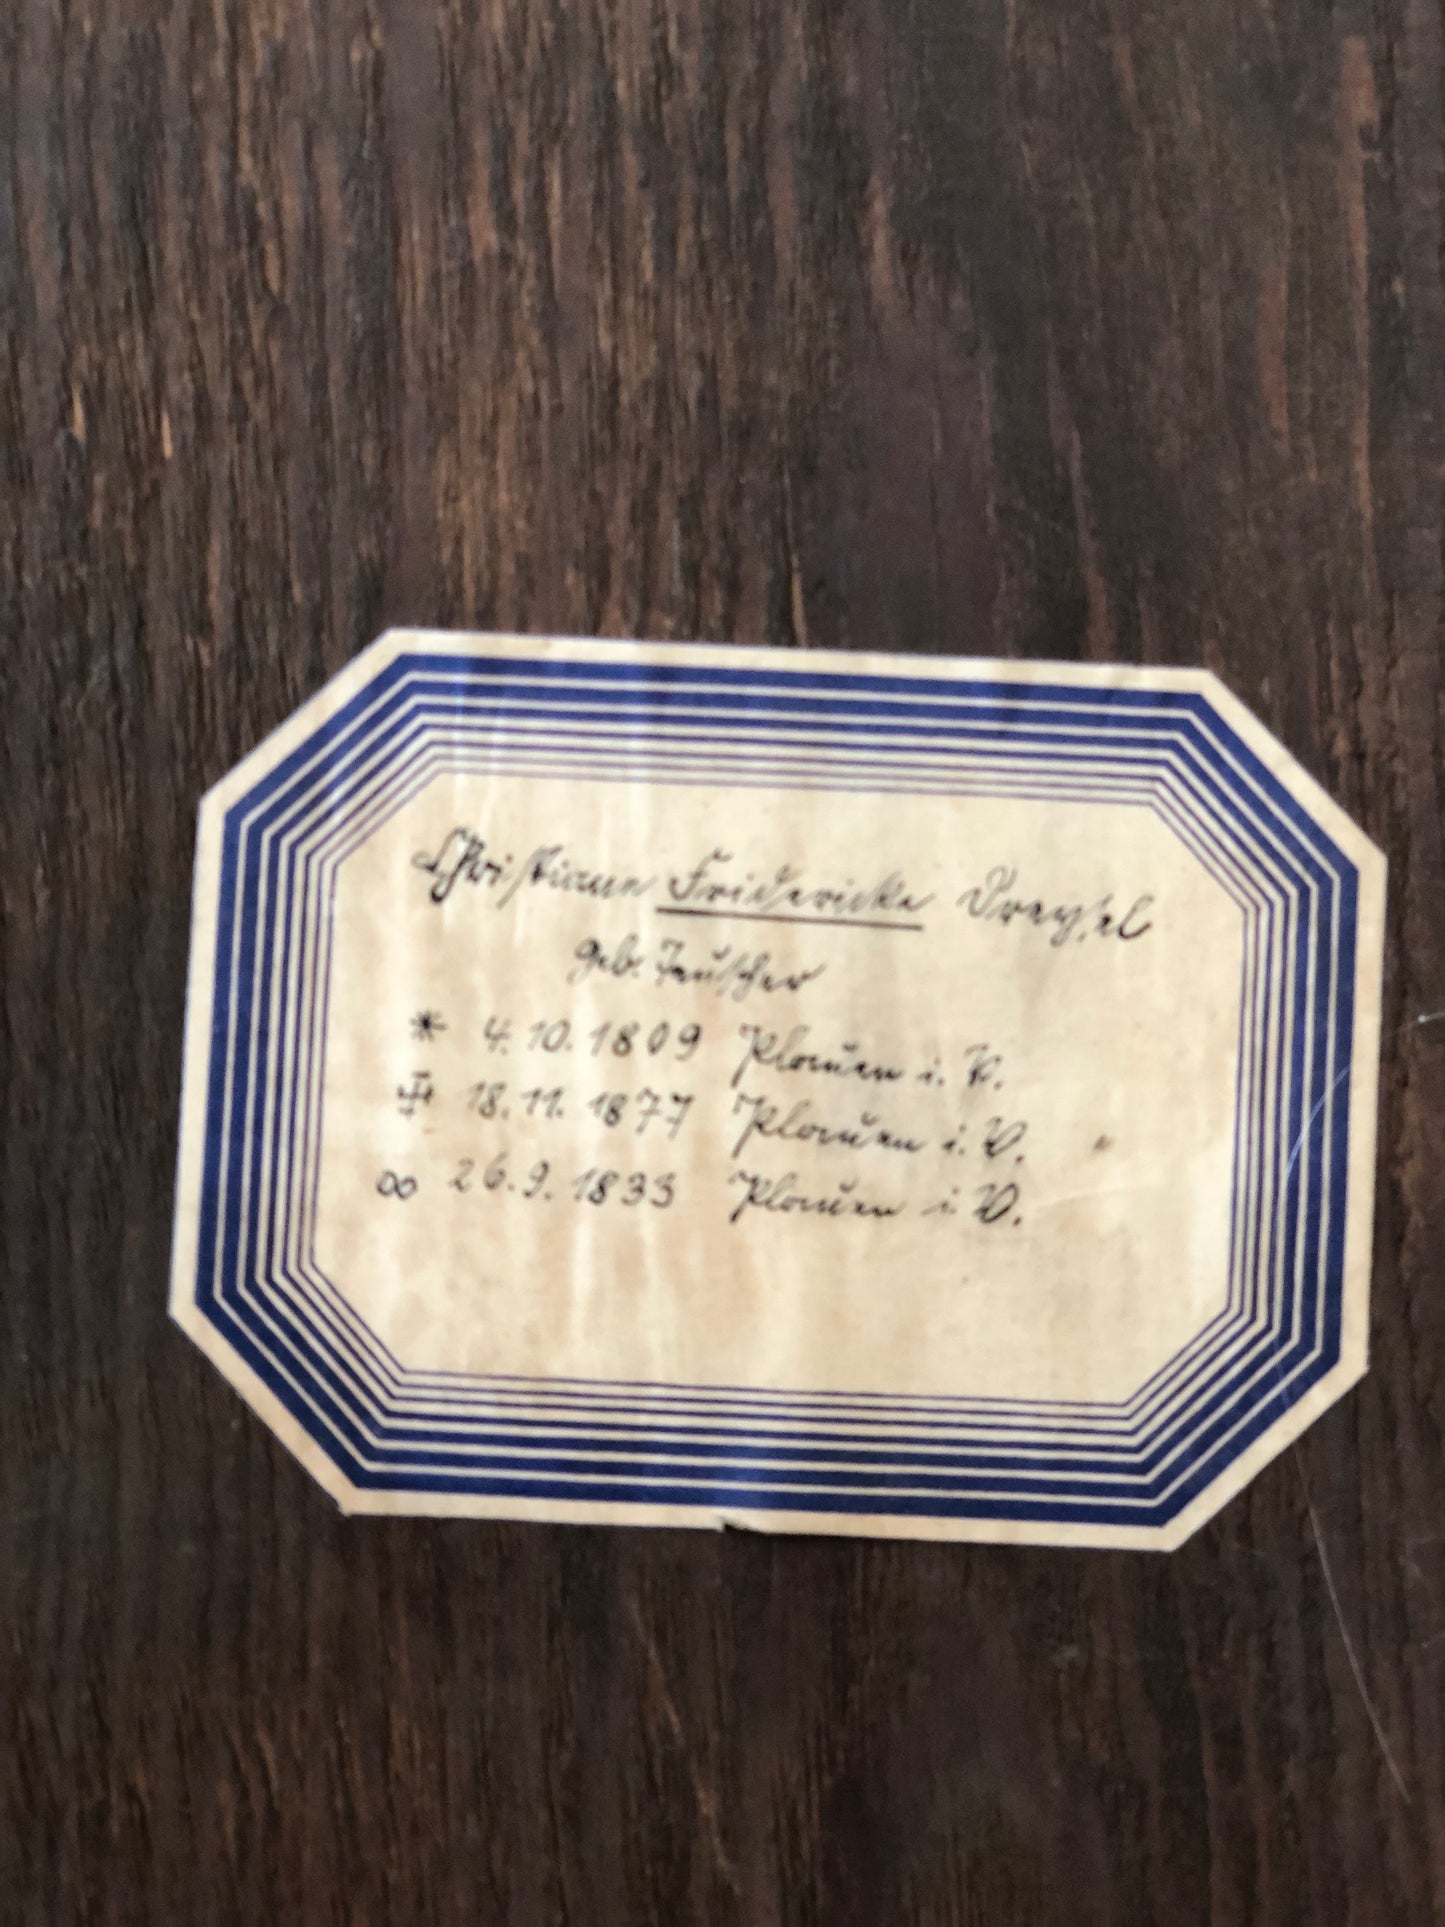 Christiane Friedericke Dreyßel
geb. Teuscher
* 4.10.1809 Plauen i. V.
✠ 18.11.1877 Plauen i. V.
∞ 26.9.1833 Plauen i. V.